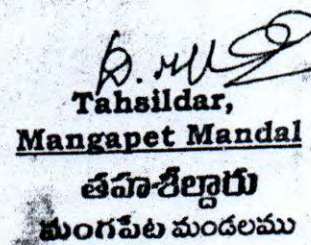 Tahsildar,
Mangapet Mandal
తహశీల్దారు
మంగపేట మండలము